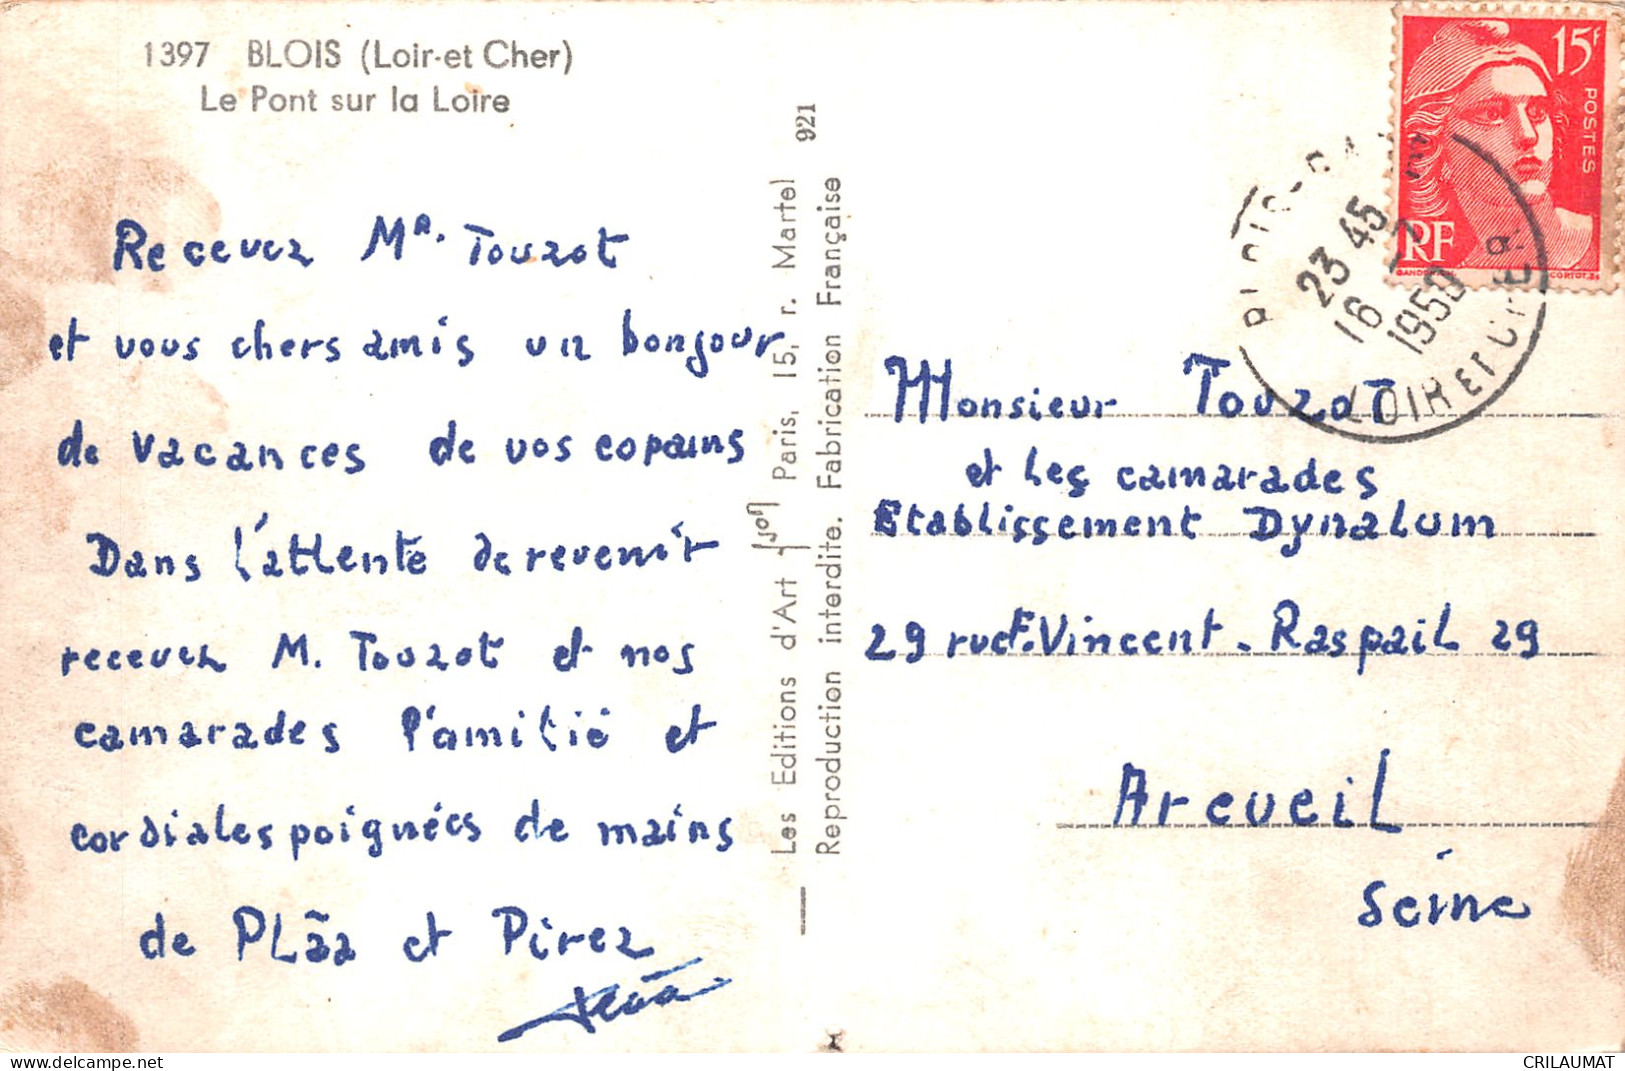 1397 BLOIS (Loir-et Cher)
Le Pont sur la Loire
Recevez Mr. Touzot
et vous chers amis un bonjour
de vacances de vos copains
Dans l'attente de revenir
recevez M. Touzot et nos
camarades l'amitié et
cordiales poignées de mains
de Plãa et Pirez
Les Editions d'Art Yvon Paris, 15, r. Martel
Reproduction interdite. Fabrication Française
921
15F
POSTES
RF
GANDON
CORTOT.SC
23 45
16 - 2
1950
LOIR ET CHER
Monsieur Touzot
et les camarades
Etablissement Dynalum
29 rue F. Vincent - Raspail 29
Arcueil
Seine
CRILAUMAT